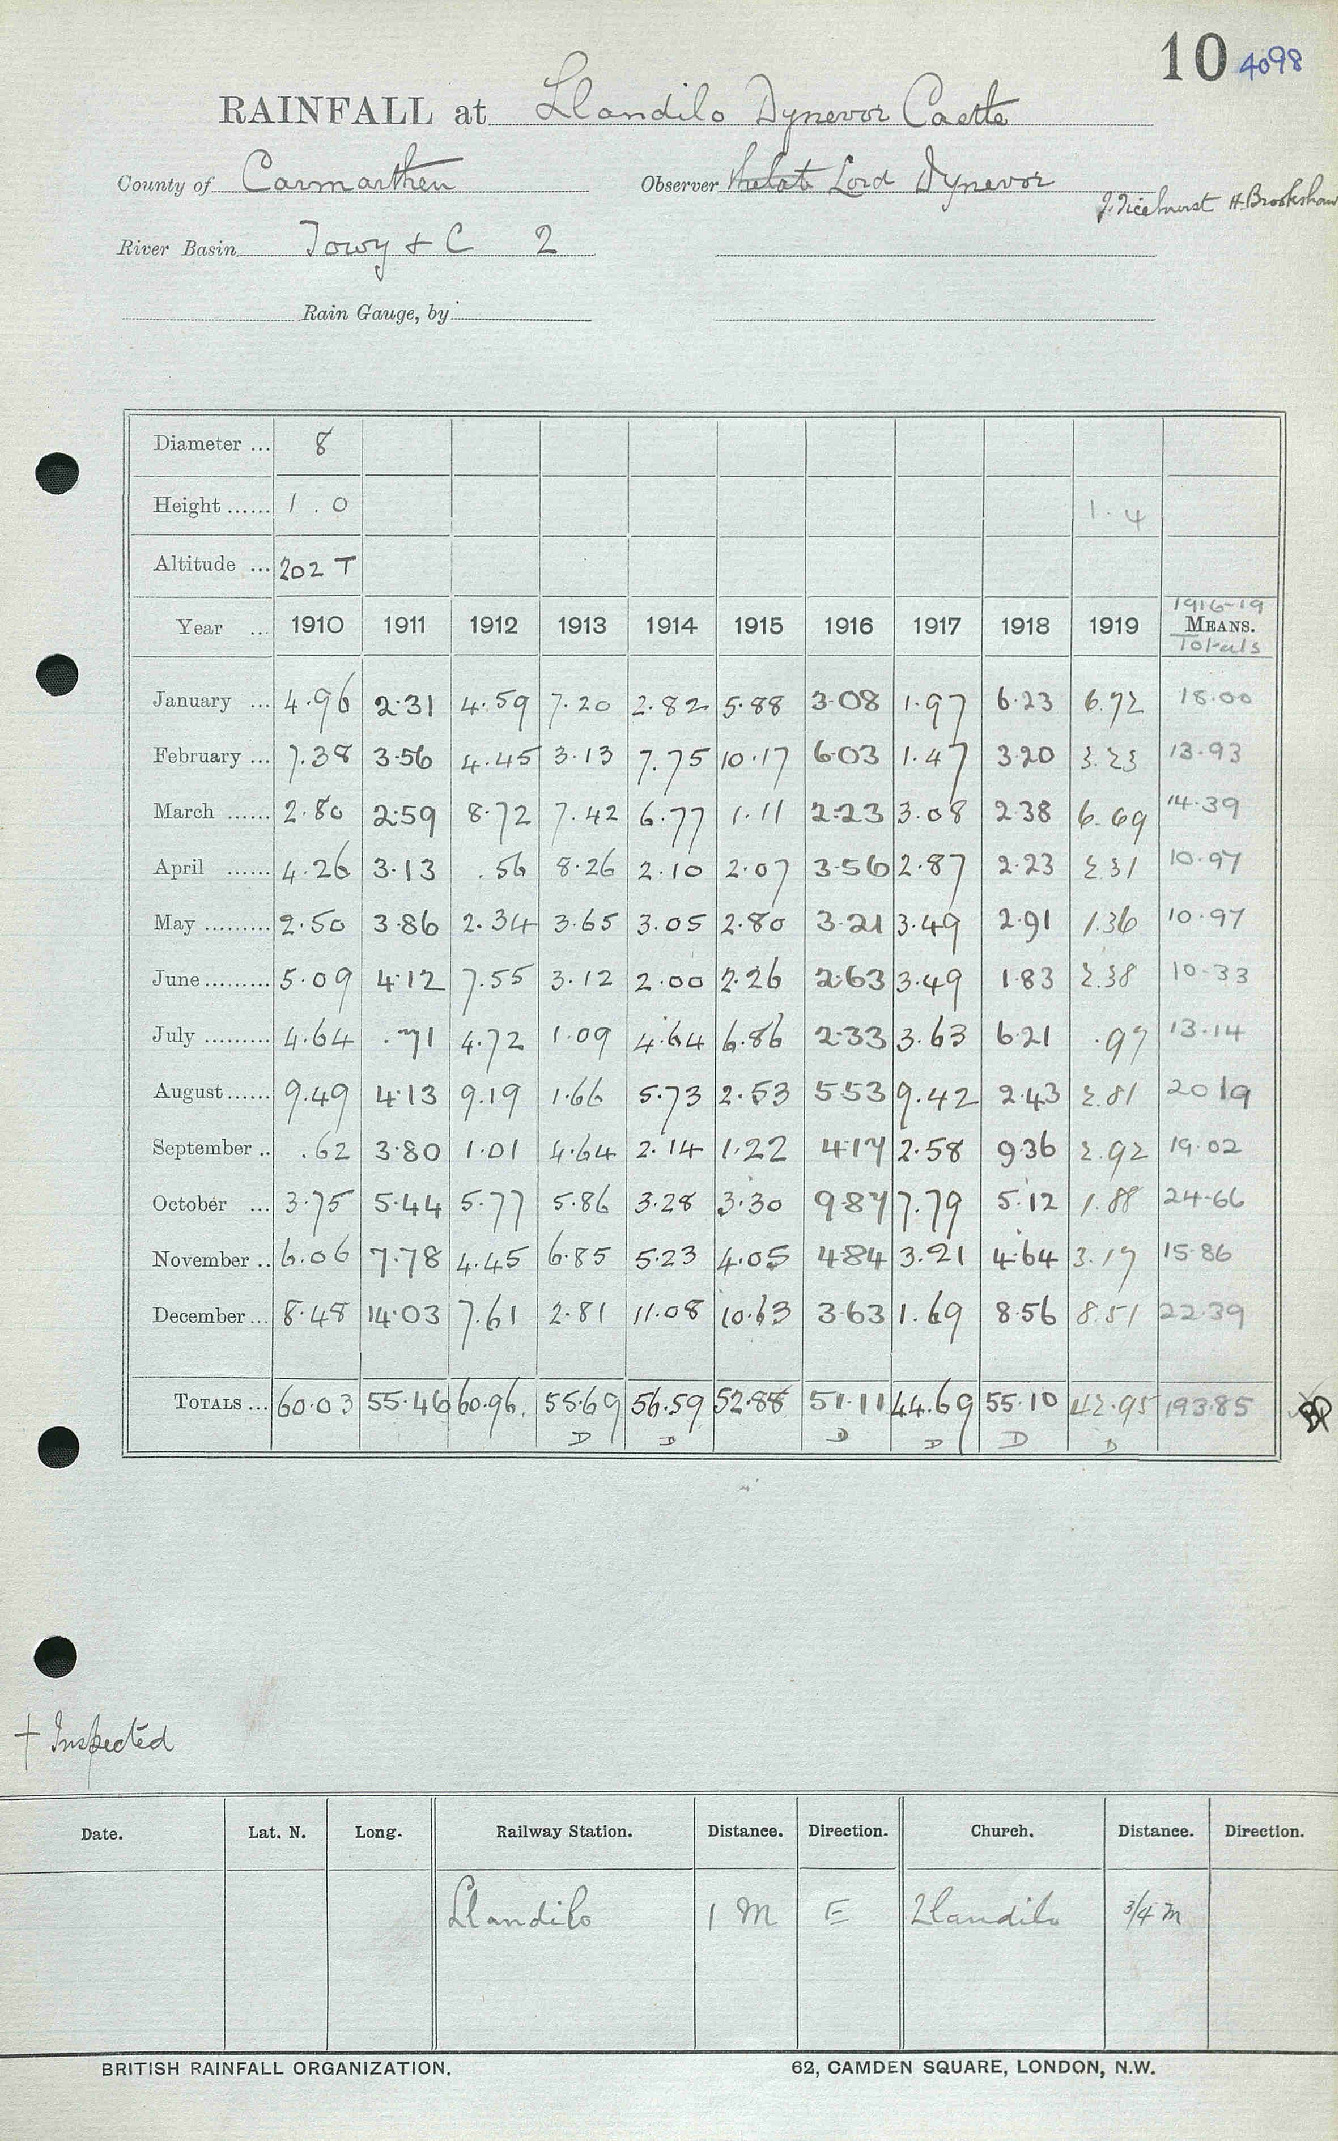 10 4098
RAINFALL at Llandilo Dynevor Castle
County of Carmarthen Observer Lord Dynevor
H. Brookshaw
River Basin Towy & C 2
Rain Gauge, by
Diameter ... 8
Height ...... 1 . 0 1.4
Altitude ... 202 T
1916-19
Year ... 1910 1911 1912 1913 1914 1915 1916 1917 1918 1919 MEANS.
Totals
January ... 4.96 2.31 4.59 7.20 2.82 5.88 3.08 1.97 6.23 6.72 18.00
February ... 7.38 3.56 4.45 3.13 7.75 10.17 6.03 1.47 3.20 3.23 13.93
March ...... 2.80 2.59 8.72 7.42 6.77 1.11 2.23 3.08 2.38 6.69 14.39
April ...... 4.26 3.13 .56 8.26 2.10 2.07 3.56 2.87 2.23 2.31 10.97
May ......... 2.50 3.86 2.34 3.65 3.05 2.80 3.21 3.49 2.91 1.36 10.97
June ......... 5.09 4.12 7.55 3.12 2.00 2.26 2.63 3.49 1.83 2.38 10.33
July ......... 4.64 .71 4.72 1.09 4.64 6.86 2.33 3.63 6.21 .97 13.14
August ...... 9.49 4.13 9.19 1.66 5.73 2.53 5.53 9.42 2.43 2.81 20.19
September .. .62 3.80 1.01 4.64 2.14 1.22 4.17 2.58 9.36 2.92 19.02
October ... 3.75 5.44 5.77 5.86 3.28 3.30 9.87 7.79 5.12 1.88 24.66
November .. 6.06 7.78 4.45 6.85 5.23 4.05 4.84 3.21 4.64 3.17 15.86
December ... 8.48 14.03 7.61 2.81 11.08 10.63 3.63 1.69 8.56 8.51 22.39
TOTALS ... 60.03 55.46 60.96 55.69 56.59 52.88 51.11 44.69 55.10 42.95 193.85
D D D D D D
† Inspected
Date. Lat. N. Long. Railway Station. Distance. Direction. Church. Distance. Direction.
Llandilo 1 M E Llandilo 3/4 m
BRITISH RAINFALL ORGANIZATION. 62, CAMDEN SQUARE, LONDON, N.W.